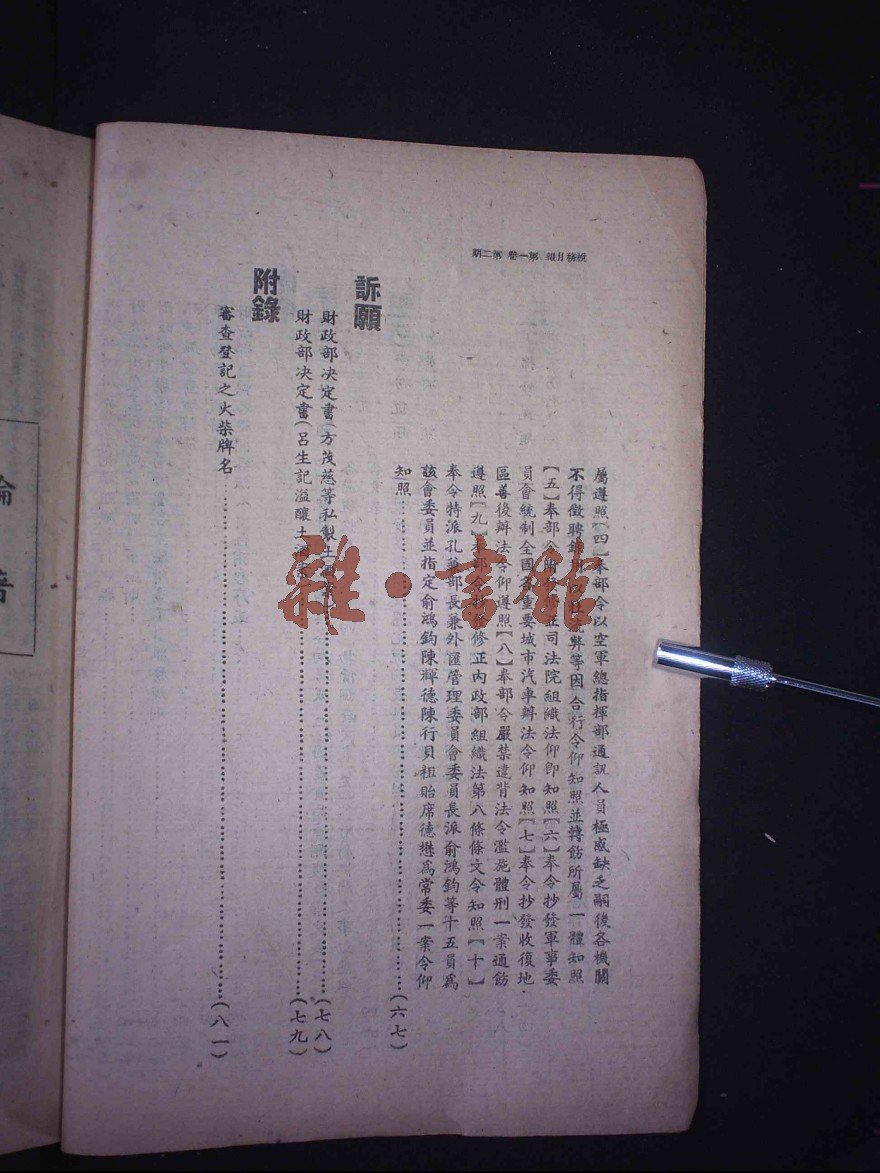 税務月報 第一卷 第二期
屬遵照【四】奉部令以空軍總指揮部通訊人員極感缺乏嗣後各機關
不得徵聘 等因合行令仰知照並轉飭所屬一體知照
【五】奉部令 修正司法院組織法仰卽知照【六】奉令抄發軍事委
員會統制全國各重要城市汽車辦法令仰知照【七】奉令抄發收復地
區善後辦法令仰遵照【八】奉部令嚴禁違背法令濫施體刑一案通飭
遵照【九】奉部令抄發修正內政部組織法第八條條文令知照【十】
奉令特派孔兼部長兼外匯管理委員會委員長派俞鴻鈞等十五員爲
該會委員並指定俞鴻鈞陳輝德陳行貝祖貽席德懋爲常委一案令仰
知照……(六七)
訴願
財政部決定書(方茂燕等私製土酒……(七八)
財政部決定書(呂生記溢釀土酒……(七九)
附錄
審查登記之火柴牌名……(八一)
雜·書館